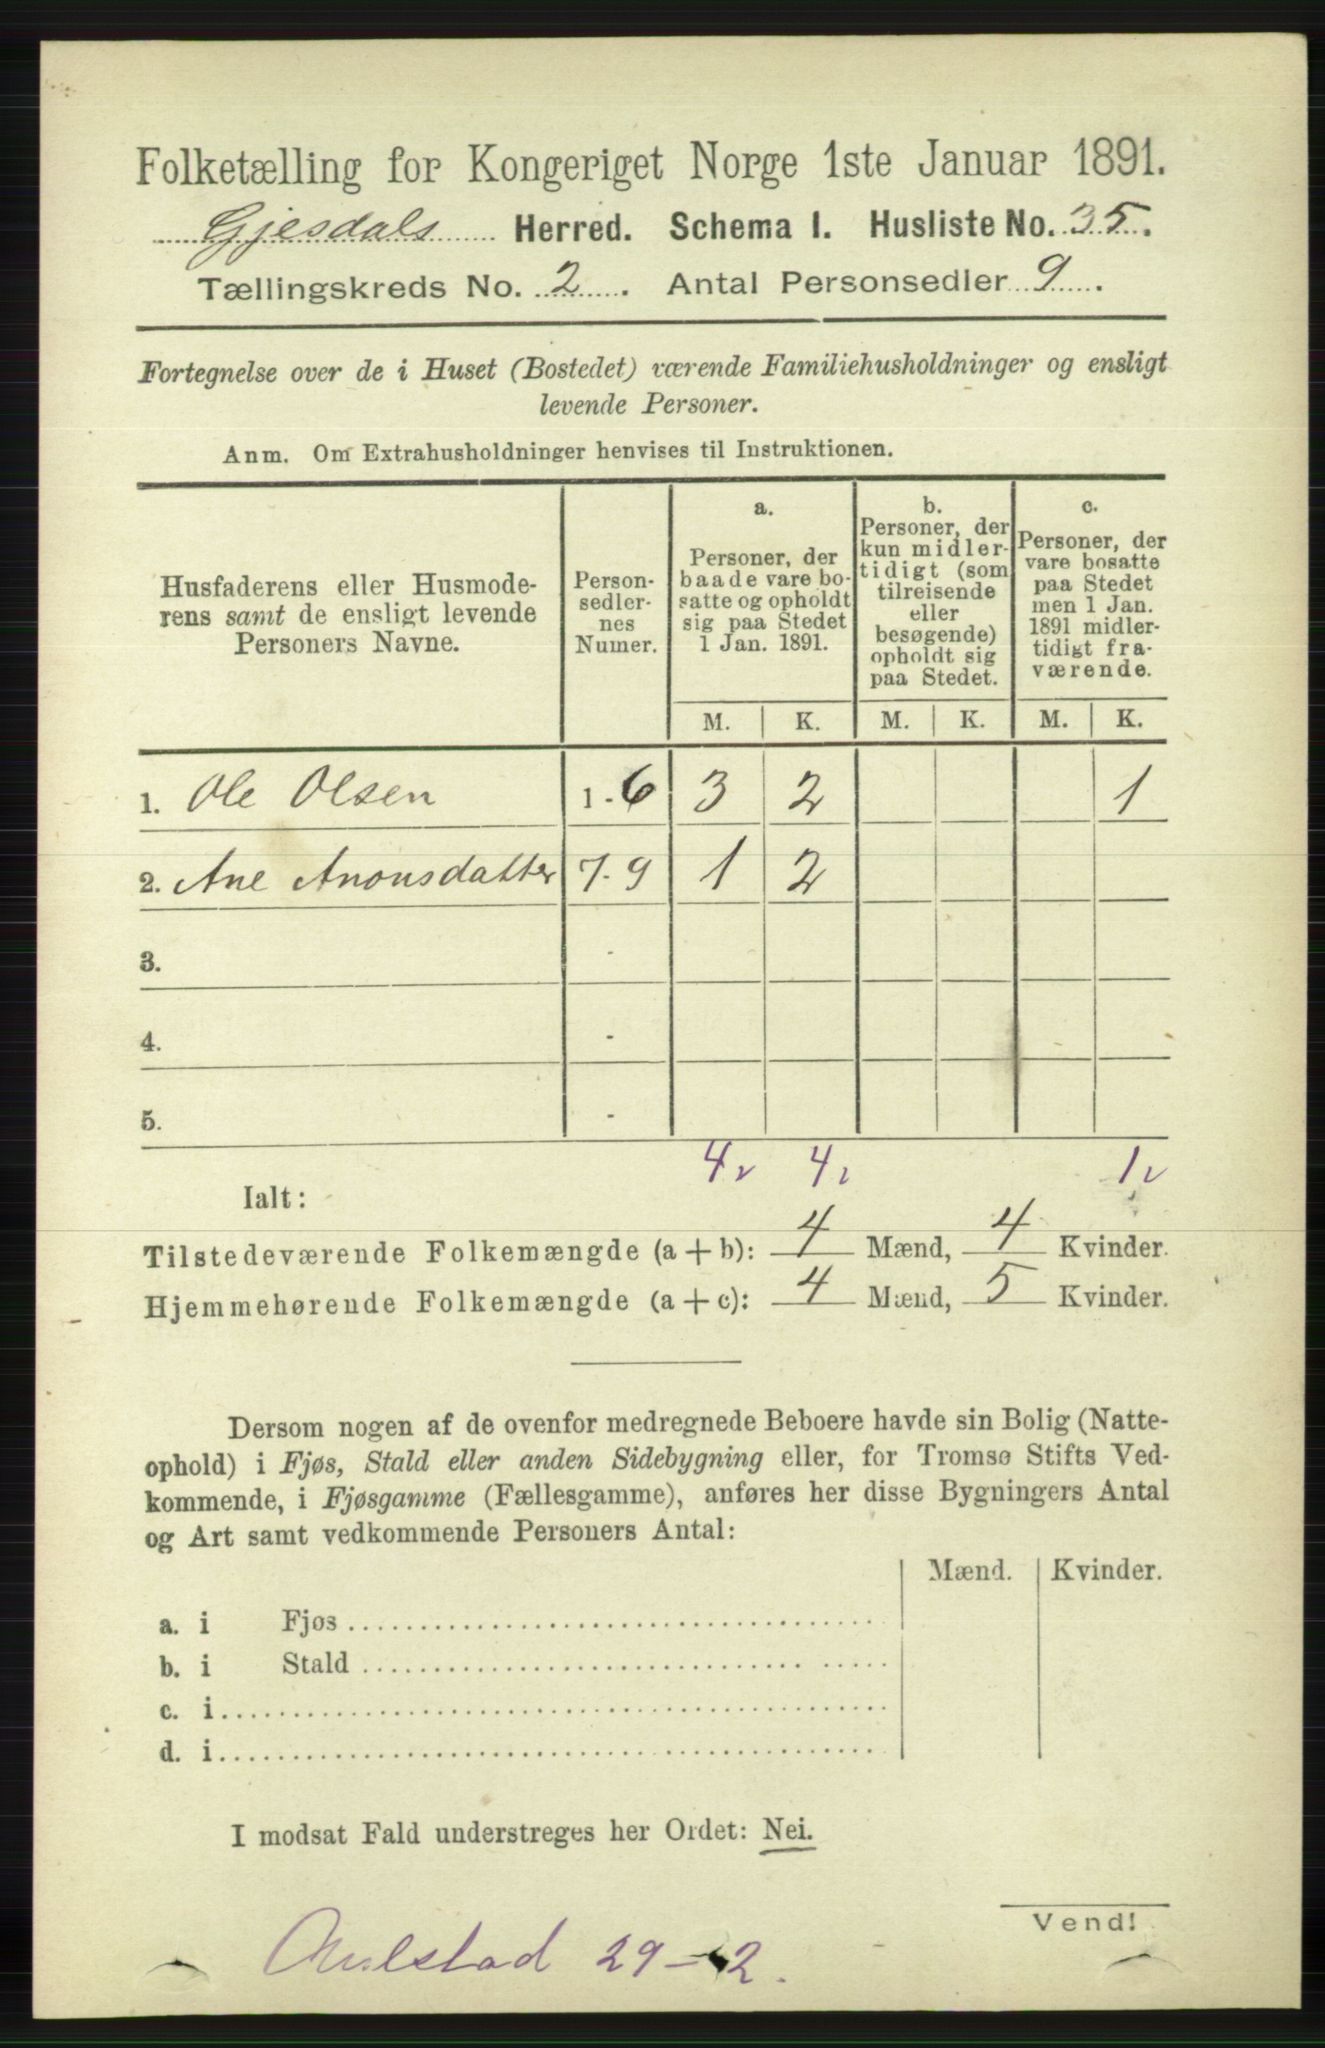 Folketælling for Kongeriget Norge 1ste Januar 1891.
Gjesdals Herred. Schema I. Husliste No. 35.
Tællingskreds No. 2. Antal Personsedler 9.
Fortegnelse over de i Huset (Bostedet) værende Familiehusholdninger og ensligt
levende Personer.
Anm. Om Extrahusholdninger henvises til Instruktionen.
Husfaderens eller Husmode-
rens samt de ensligt levende
Personers Navne.
Person-
sedler-
nes
Numer.
a.
Personer, der
baade vare bo-
satte og opholdt
sig paa Stedet
1 Jan. 1891.
b.
Personer, der
kun midler-
tidigt (som
tilreisende
eller
besøgende)
opholdt sig
paa Stedet.
c.
Personer, der
vare bosatte
paa Stedet
men 1 Jan.
1891 midler-
tidigt fra-
værende.
M. K. M. K. M. K.
1. Ole Olsen 1-6 3 2 1
2. Ane Anonsdatter 7-9 1 2
3. -
4. -
5. -
4 4 1
Ialt:
Tilstedeværende Folkemængde (a+b): 4 Mænd, 4 Kvinder.
Hjemmehørende Folkemængde (a+c): 4 Mænd, 5 Kvinder.
Dersom nogen af de ovenfor medregnede Beboere havde sin Bolig (Natte-
ophold) i Fjøs, Stald eller anden Sidebygning eller, for Tromsø Stifts Ved-
kommende, i Fjøsgamme (Fællesgamme), anføres her disse Bygningers Antal
og Art samt vedkommende Personers Antal:
Mænd. Kvinder.
a. i Fjøs
b. i Stald
c. i
d. i
I modsat Fald understreges her Ordet: Nei.
Vend!
29-2.